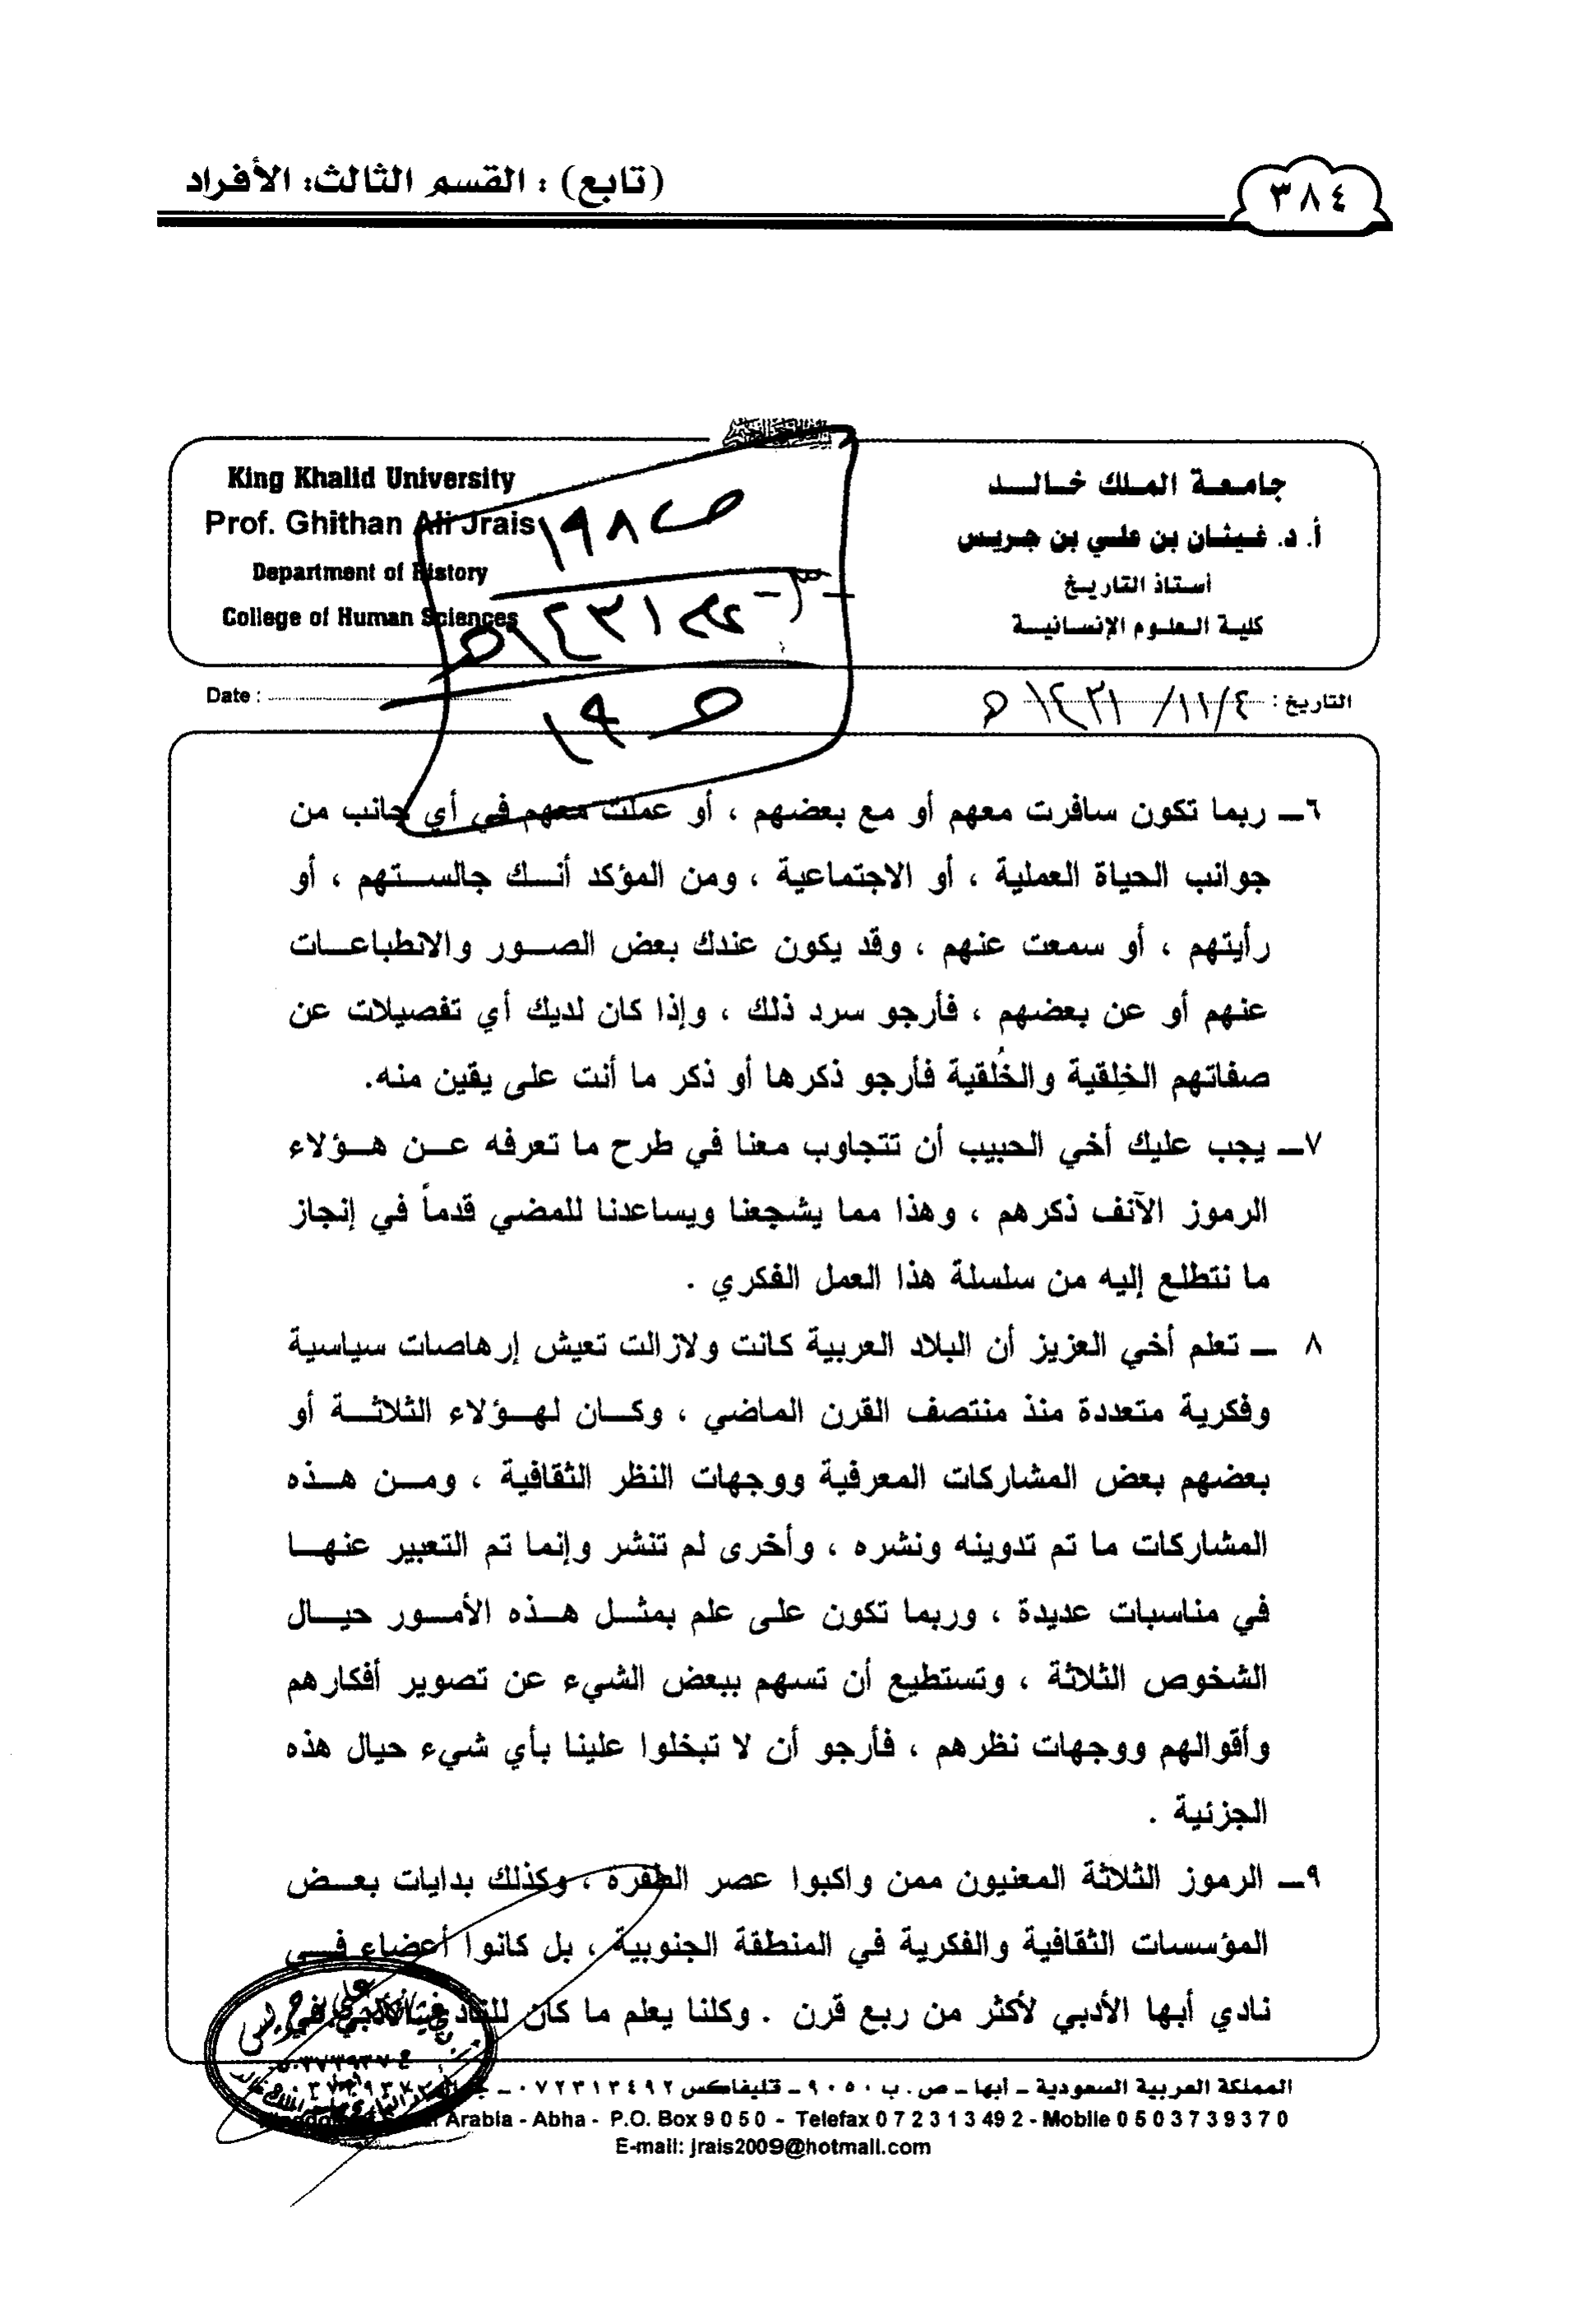 (تابع) : القسم الثالث: الأفراد
٣٨٤
King Khalid University
Prof. Ghithan Ali Jrais
Department of History
College of Human Sciences
جامعة الملك خالد
أ. د. غيثان بن علي بن جريس
أستاذ التاريخ
كلية العلوم الإنسانية
ص ١٩٨
١٤٣١هـ
ص ١٩
Date :
التاريخ : ١١/٤/ ١٤٣١هـ
٦ــ ربما تكون سافرت معهم أو مع بعضهم ، أو عملت معهم في أي جانب من
جوانب الحياة العملية ، أو الاجتماعية ، ومن المؤكد أنك جالستهم ، أو
رأيتهم ، أو سمعت عنهم ، وقد يكون عندك بعض الصور والانطباعات
عنهم أو عن بعضهم ، فأرجو سرد ذلك ، وإذا كان لديك أي تفصيلات عن
صفاتهم الخِلقية والخُلقية فأرجو ذكرها أو ذكر ما أنت على يقين منه.
٧ــ يجب عليك أخي الحبيب أن تتجاوب معنا في طرح ما تعرفه عن هؤلاء
الرموز الآنف ذكرهم ، وهذا مما يشجعنا ويساعدنا للمضي قدماً في إنجاز
ما نتطلع إليه من سلسلة هذا العمل الفكري .
٨ ــ تعلم أخي العزيز أن البلاد العربية كانت ولازالت تعيش إرهاصات سياسية
وفكرية متعددة منذ منتصف القرن الماضي ، وكان لهؤلاء الثلاثة أو
بعضهم بعض المشاركات المعرفية ووجهات النظر الثقافية ، ومن هذه
المشاركات ما تم تدوينه ونشره ، وأخرى لم تنشر وإنما تم التعبير عنها
في مناسبات عديدة ، وربما تكون على علم بمثل هذه الأمور حيال
الشخوص الثلاثة ، وتستطيع أن تسهم ببعض الشيء عن تصوير أفكارهم
وأقوالهم ووجهات نظرهم ، فأرجو أن لا تبخلوا علينا بأي شيء حيال هذه
الجزئية .
٩ــ الرموز الثلاثة المعنيون ممن واكبوا عصر الطفرة ، وكذلك بدايات بعض
المؤسسات الثقافية والفكرية في المنطقة الجنوبية ، بل كانوا أعضاء في
نادي أبها الأدبي لأكثر من ربع قرن . وكلنا يعلم ما كان
المملكة العربية السعودية ــ أبها ــ ص . ب ٩٠٥٠ ــ تليفاكس ٠٧٢٣١٣٤٩٢ ــ
Arabia - Abha - P.O. Box 9 0 5 0 - Telefax 0 7 2 3 1 3 49 2 - Mobile 0 5 0 3 7 3 9 3 7 0
E-mail: jrais2009@hotmail.com